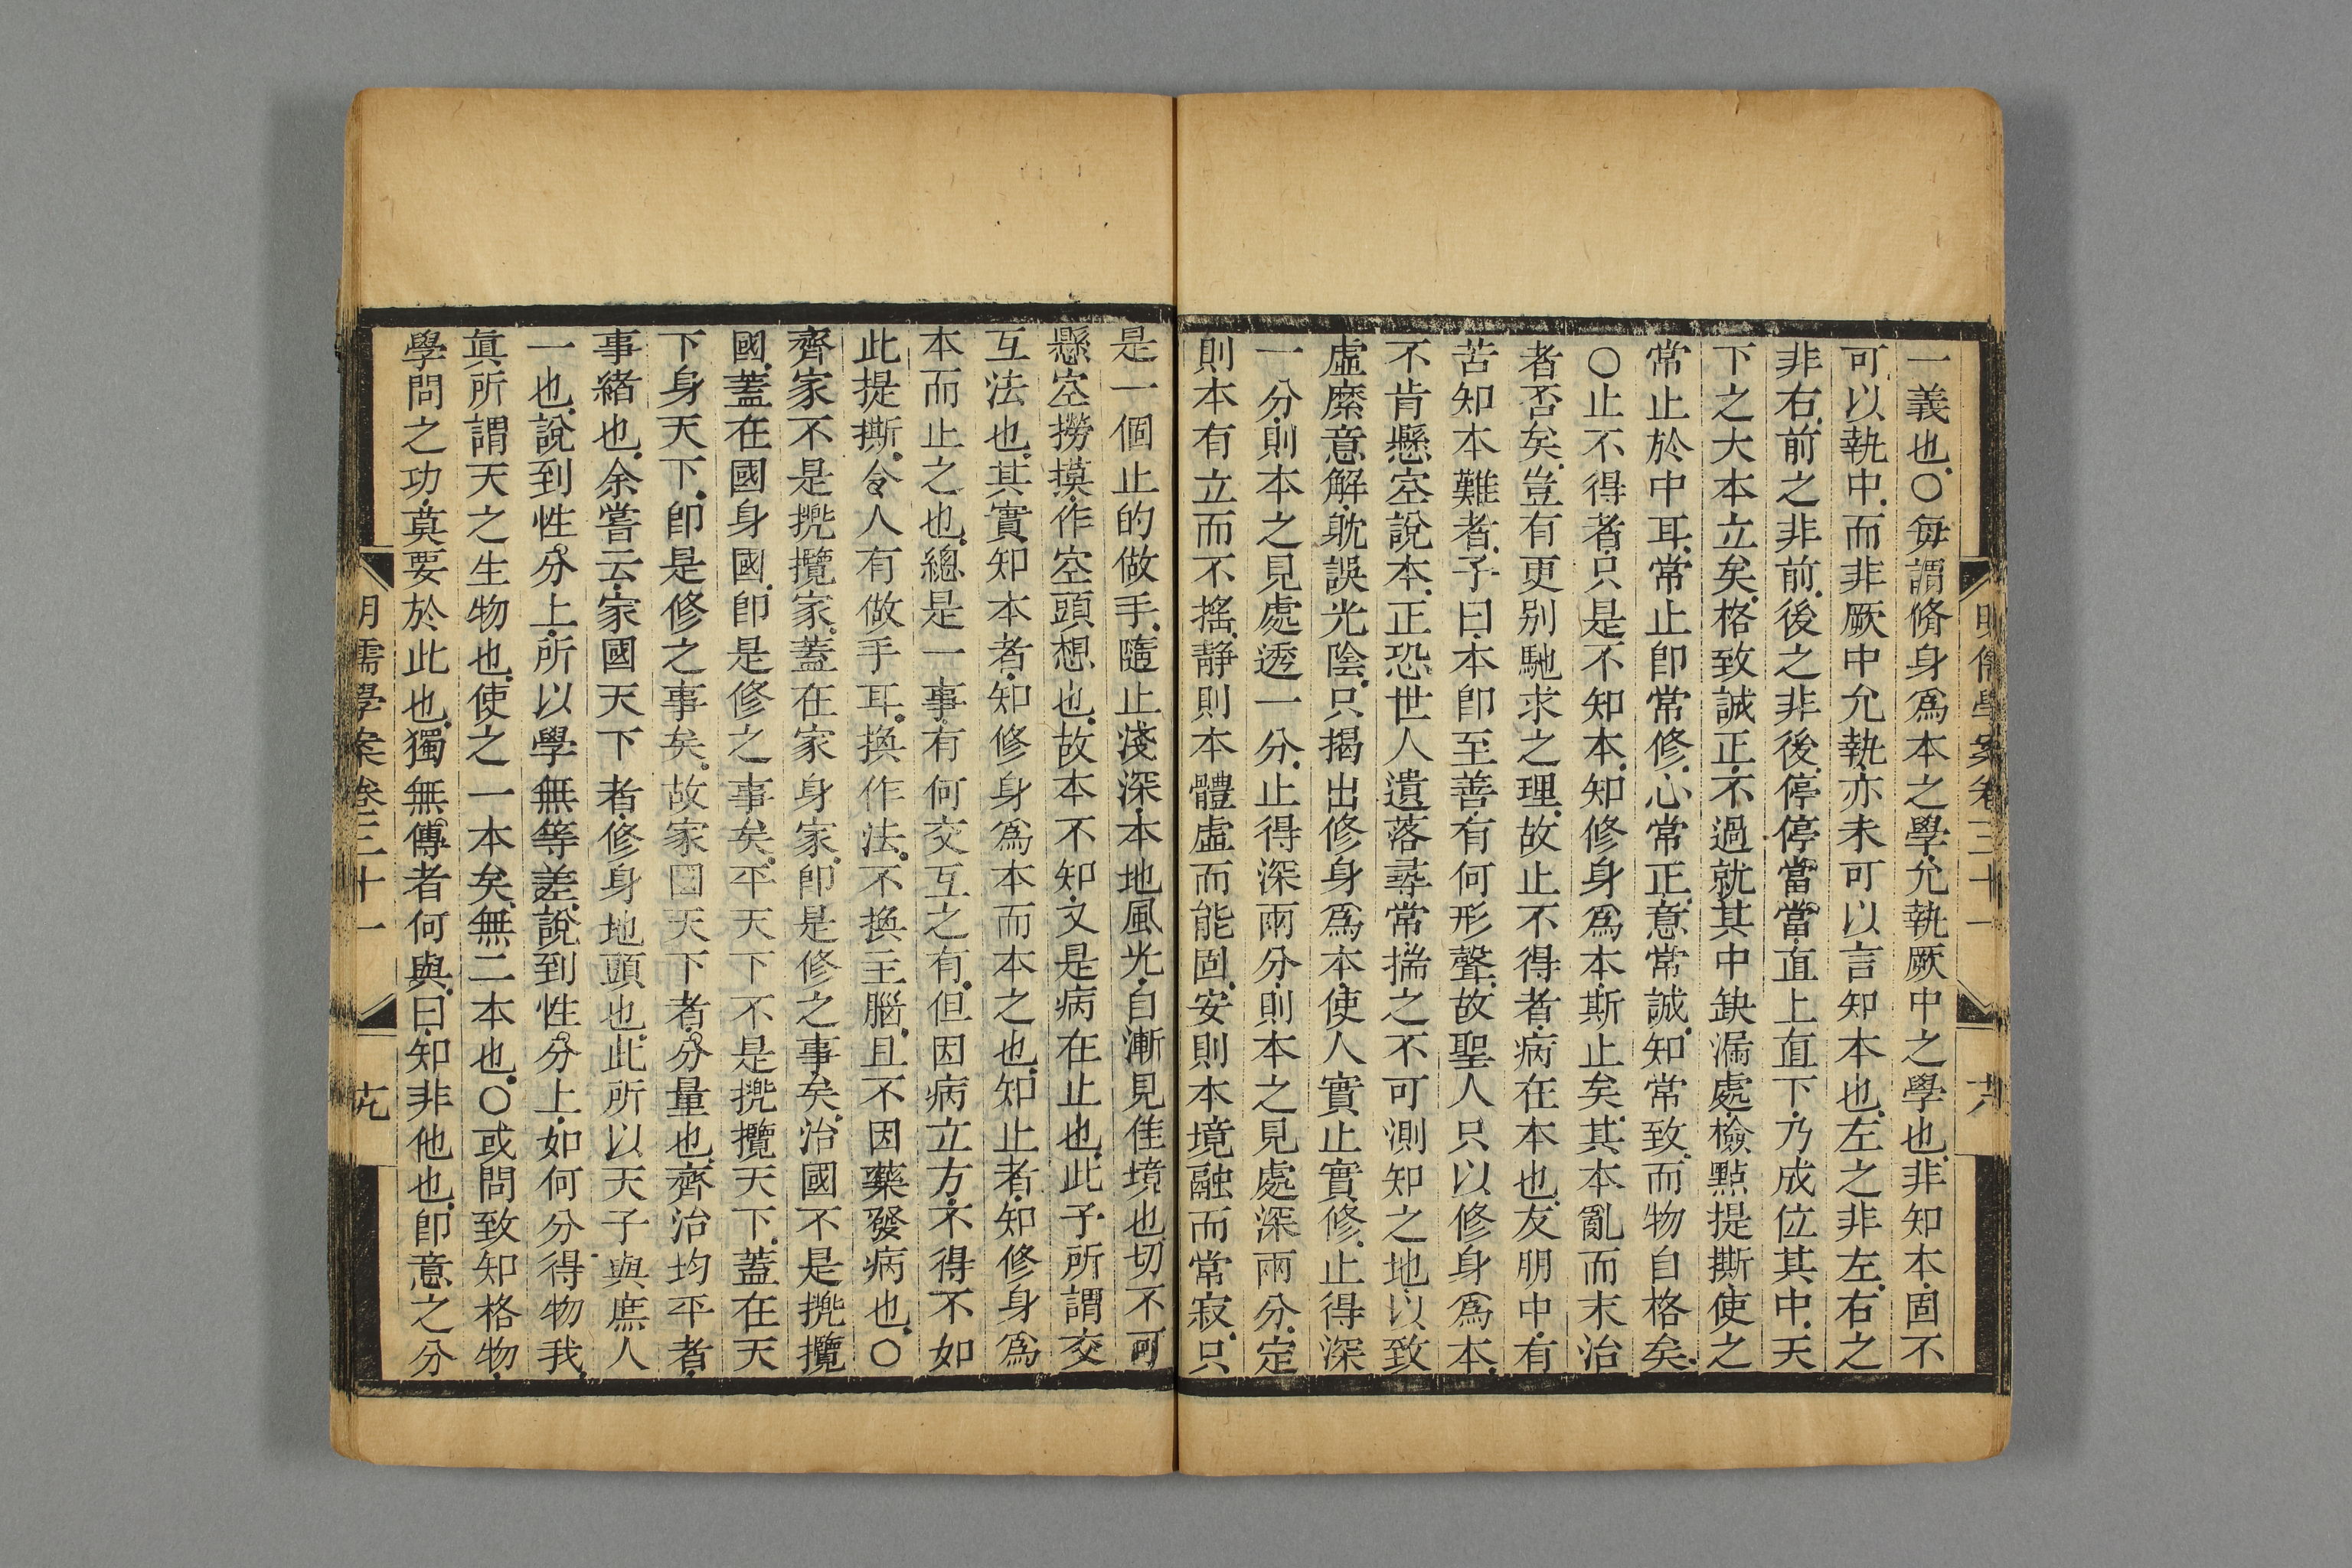 明儒學案卷三十一 六
一義也○每謂脩身爲本之學允執厥中之學也非知本固不
可以執中而非厥中允執亦未可以言知本也左之非左右之
非右前之非前後之非後停停當當直上直下乃成位其中天
下之大本立矣格致誠正不過就其中缺漏處檢點提撕使之
常止於中耳常止卽常修心常正意常誠知常致而物自格矣
○止不得者只是不知本知修身爲本斯止矣其本亂而末治
者否矣豈有更别馳求之理故止不得者病在本也友朋中有
苦知本難者予曰本卽至善有何形聲故聖人只以修身爲本
不肯懸空說本正恐世人遺落尋常揣之不可測知之地以致
虛縻意解躭誤光陰只揭出修身爲本使人實止實修止得深
一分則本之見處透一分止得深兩分則本之見處深兩分定
則本有立而不搖靜則本體虛而能固安則本境融而常寂只
是一個止的做手隨止淺深本地風光自漸見佳境也切不可
懸空撈摸作空頭想也故本不知又是病在止也此予所謂交
互法也其實知本者知修身爲本而本之也知止者知修身爲
本而止之也總是一事有何交互之有但因病立方不得不如
此提撕令人有做手耳換作法不換主腦且不因藥發病也○
齊家不是攙攬家蓋在家身家卽是修之事矣治國不是攙攬
國蓋在國身國卽是修之事矣平天下不是攙攬天下蓋在天
下身天下卽是修之事矣故家國天下者分量也齊治均平者
事緒也余嘗云家國天下者修身地頭也此所以天子與庶人
一也說到性分上所以學無等差說到性分上如何分得物我
眞所謂天之生物也使之一本矣無二本也○或問致知格物
學問之功莫要於此也獨無傳者何與曰知非他也卽意之分
明儒學案卷三十一 九